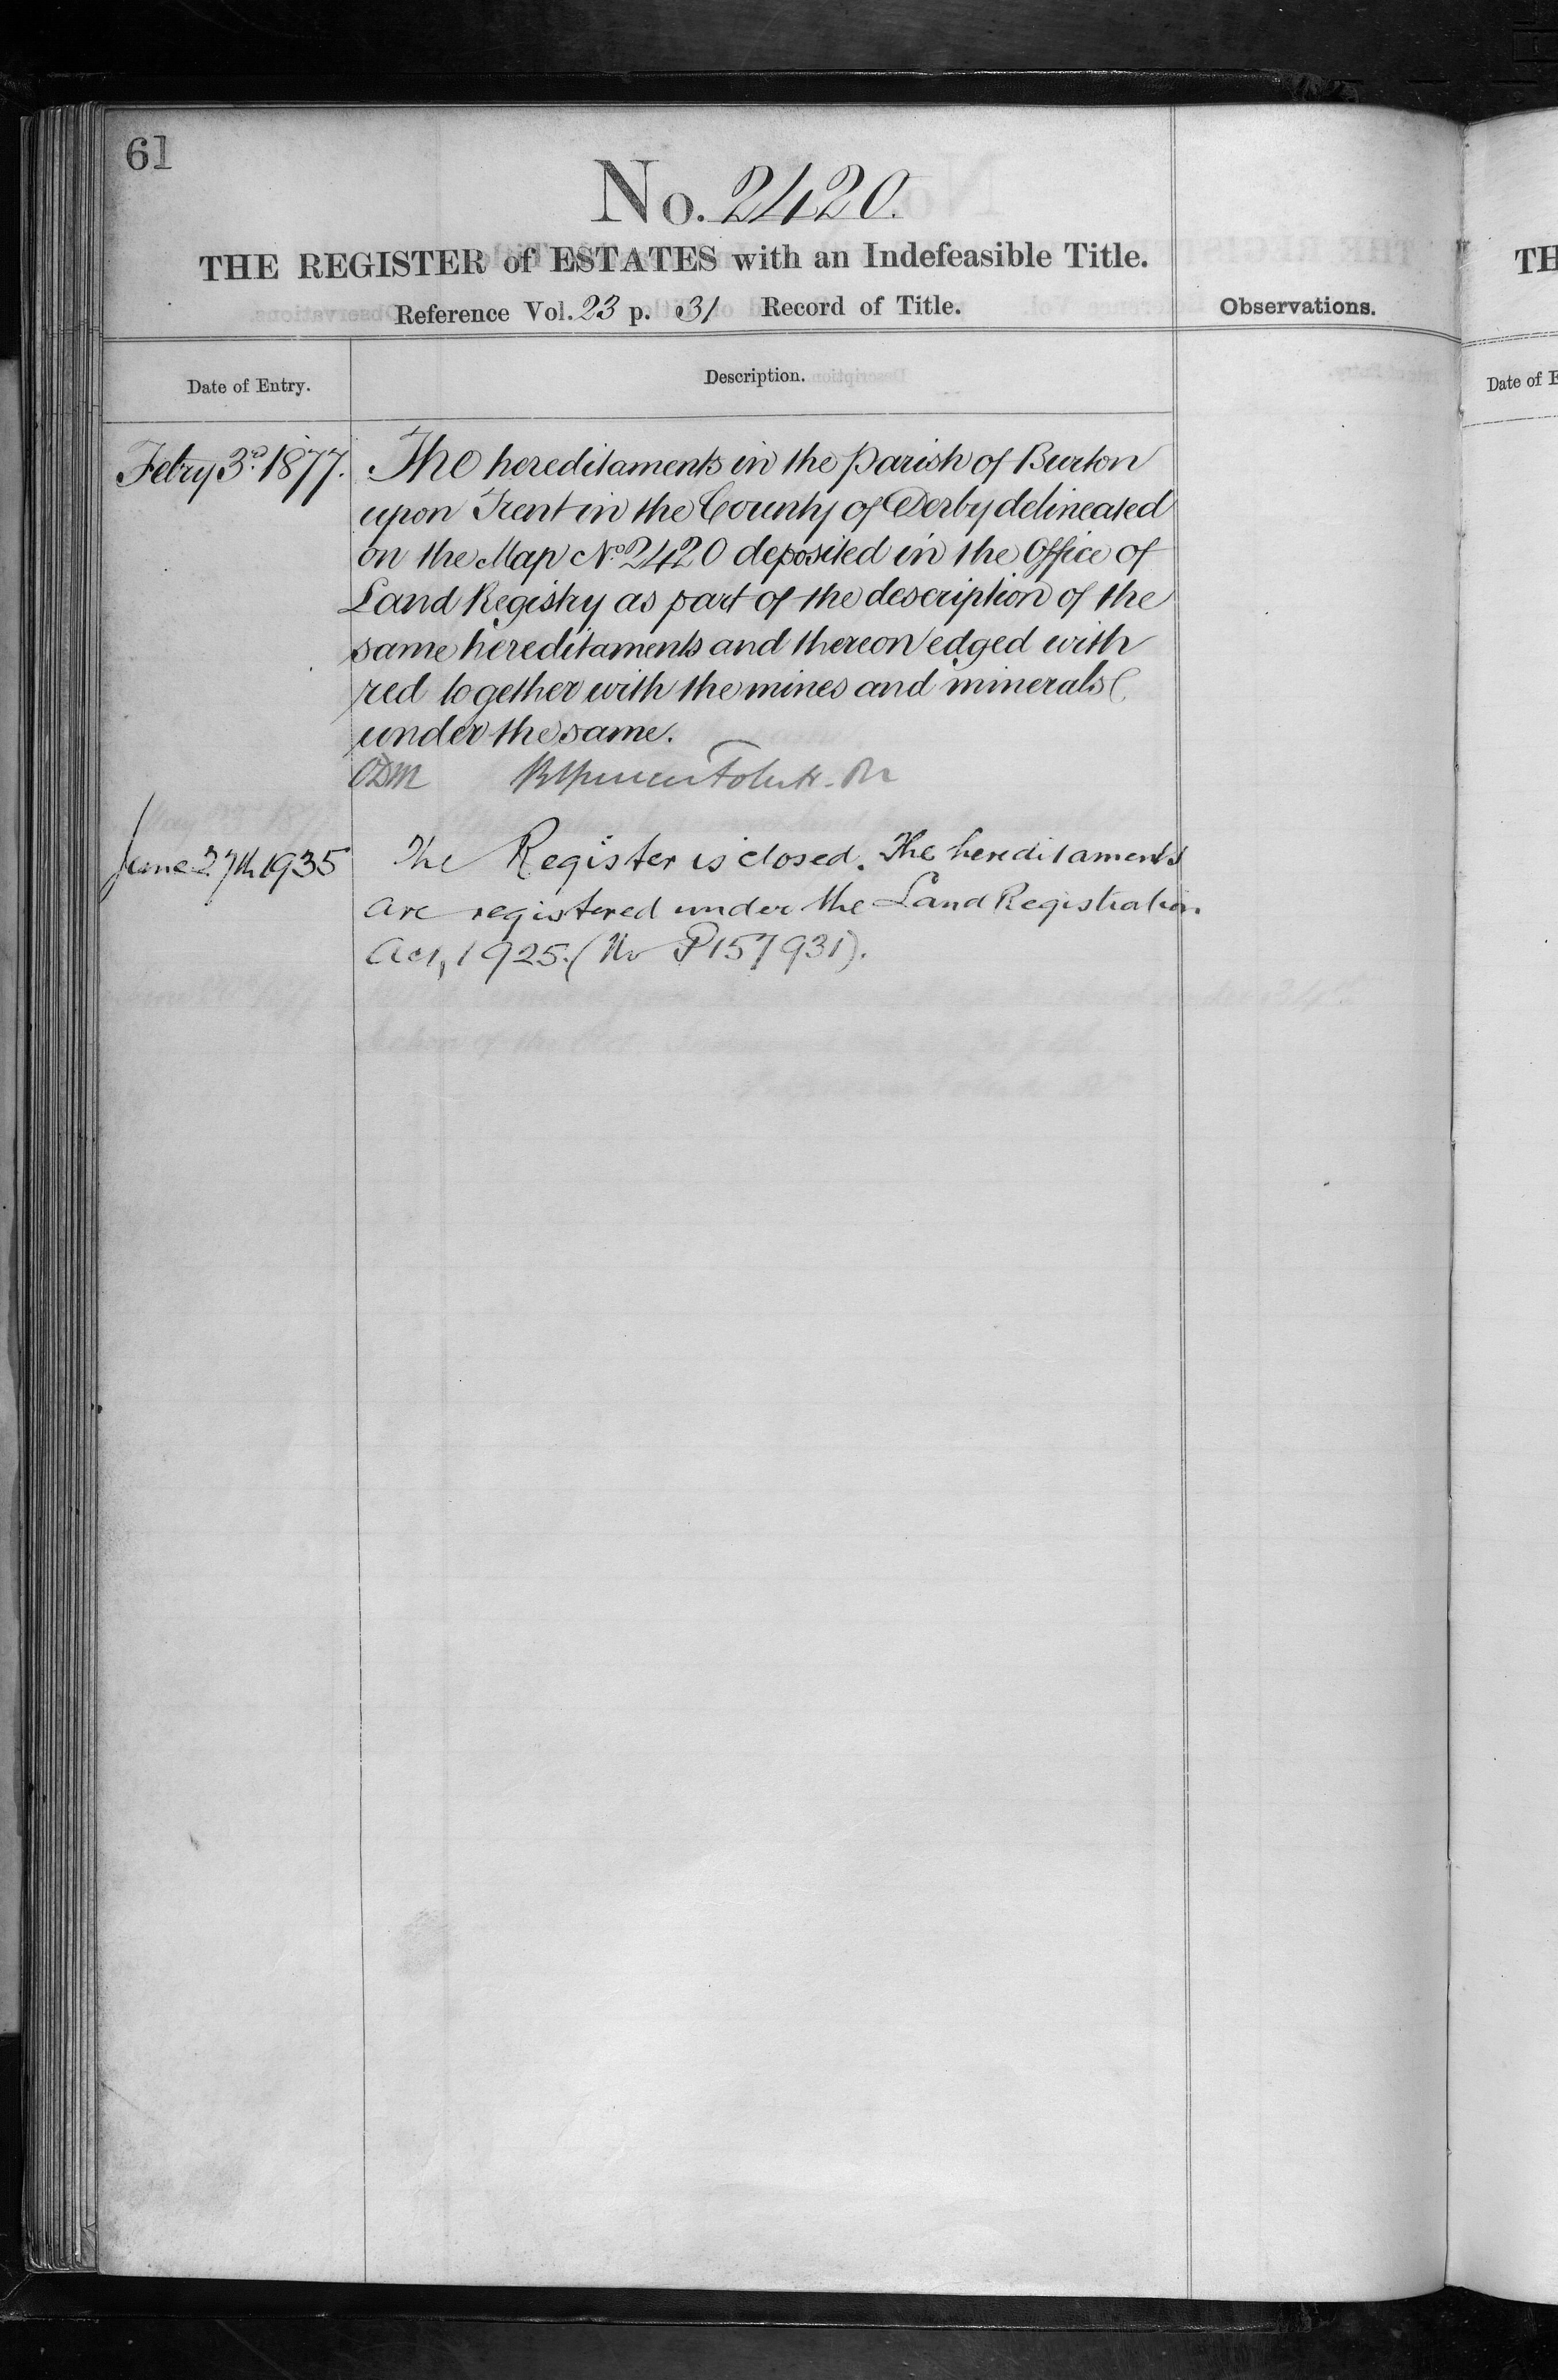 61
No. 2420.
THE REGISTER of ESTATES with an Indefeasible Title.
Reference Vol. 23 p. 31 Record of Title.
Observations.
Date of Entry.
Description.
Febry 3d. 1877.
The hereditaments in the Parish of Burton
upon Trent in the County of Derby delineated
on the Map No. 2420 deposited in the Office of
Land Registry as part of the description of the
same hereditaments and thereon edged with
red together with the mines and minerals
under the same.
June 27th 1935
The Register is closed. The hereditaments
are registered under the Land Registration
Act, 1925. (No P157931).
TH
Date of E